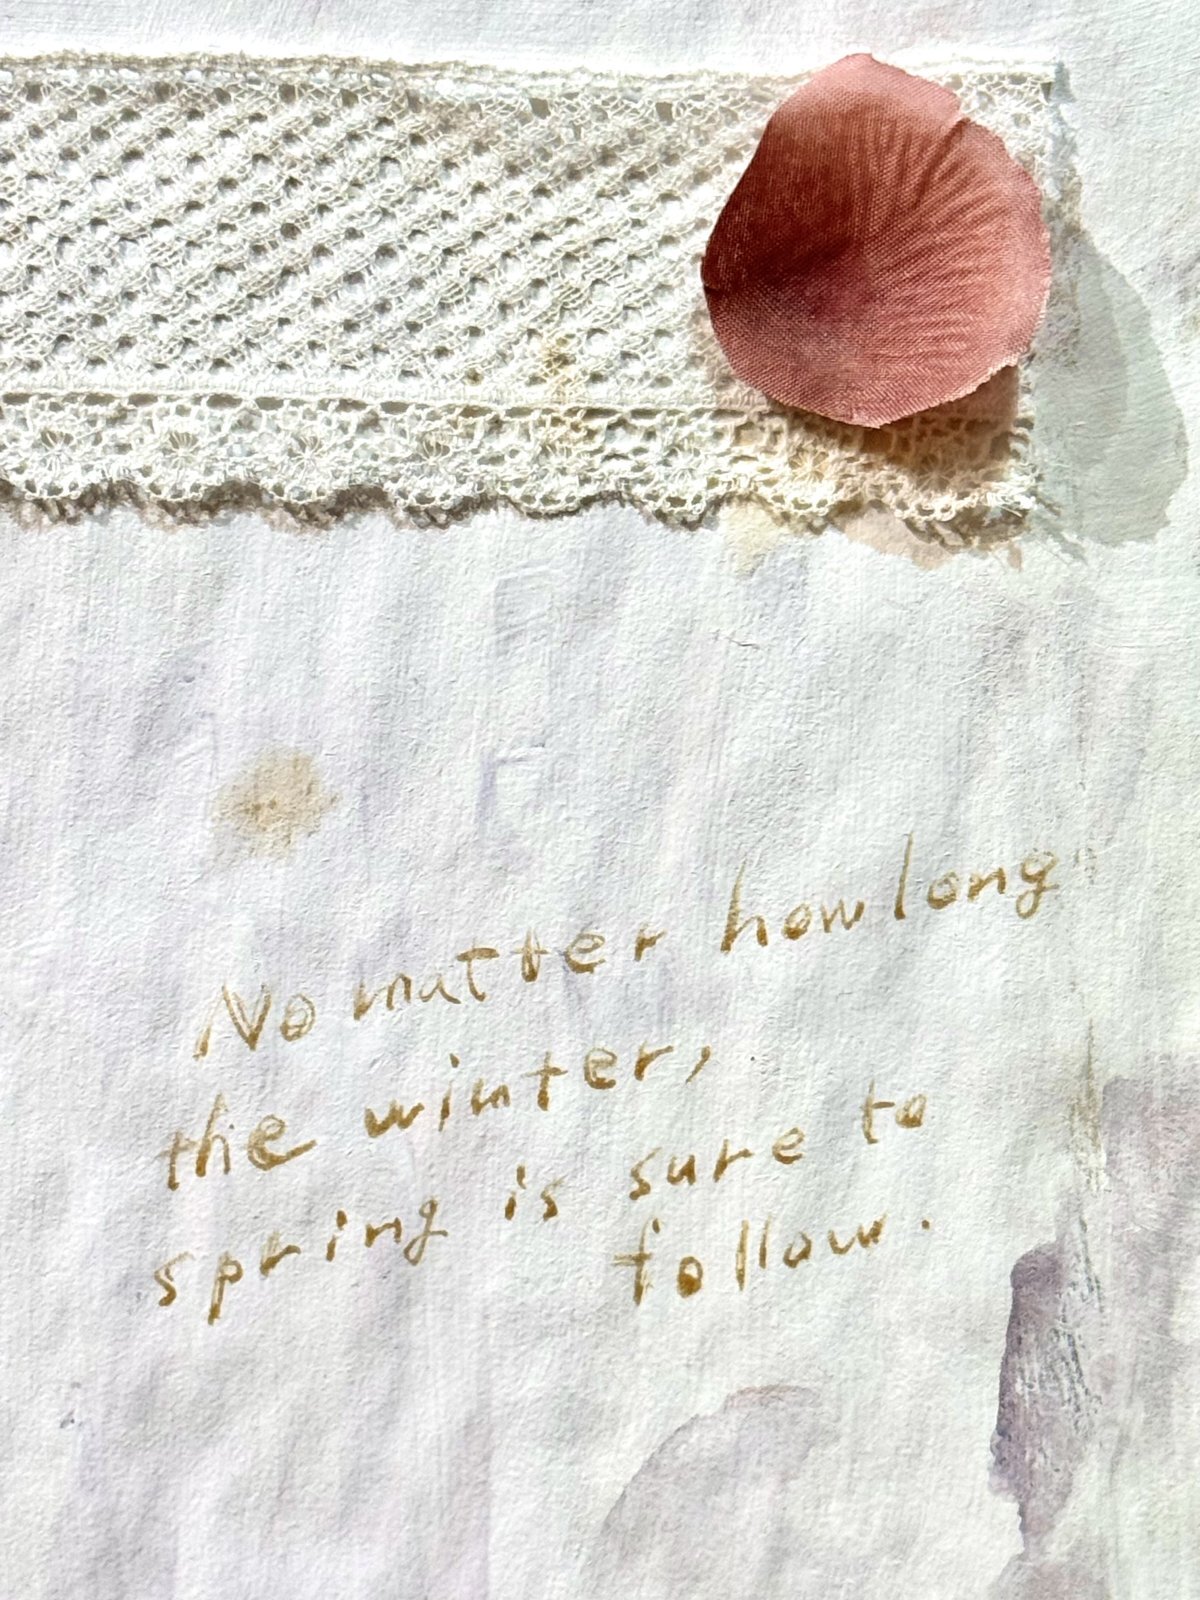 No matter how long
the winter,
spring is sure to
follow.